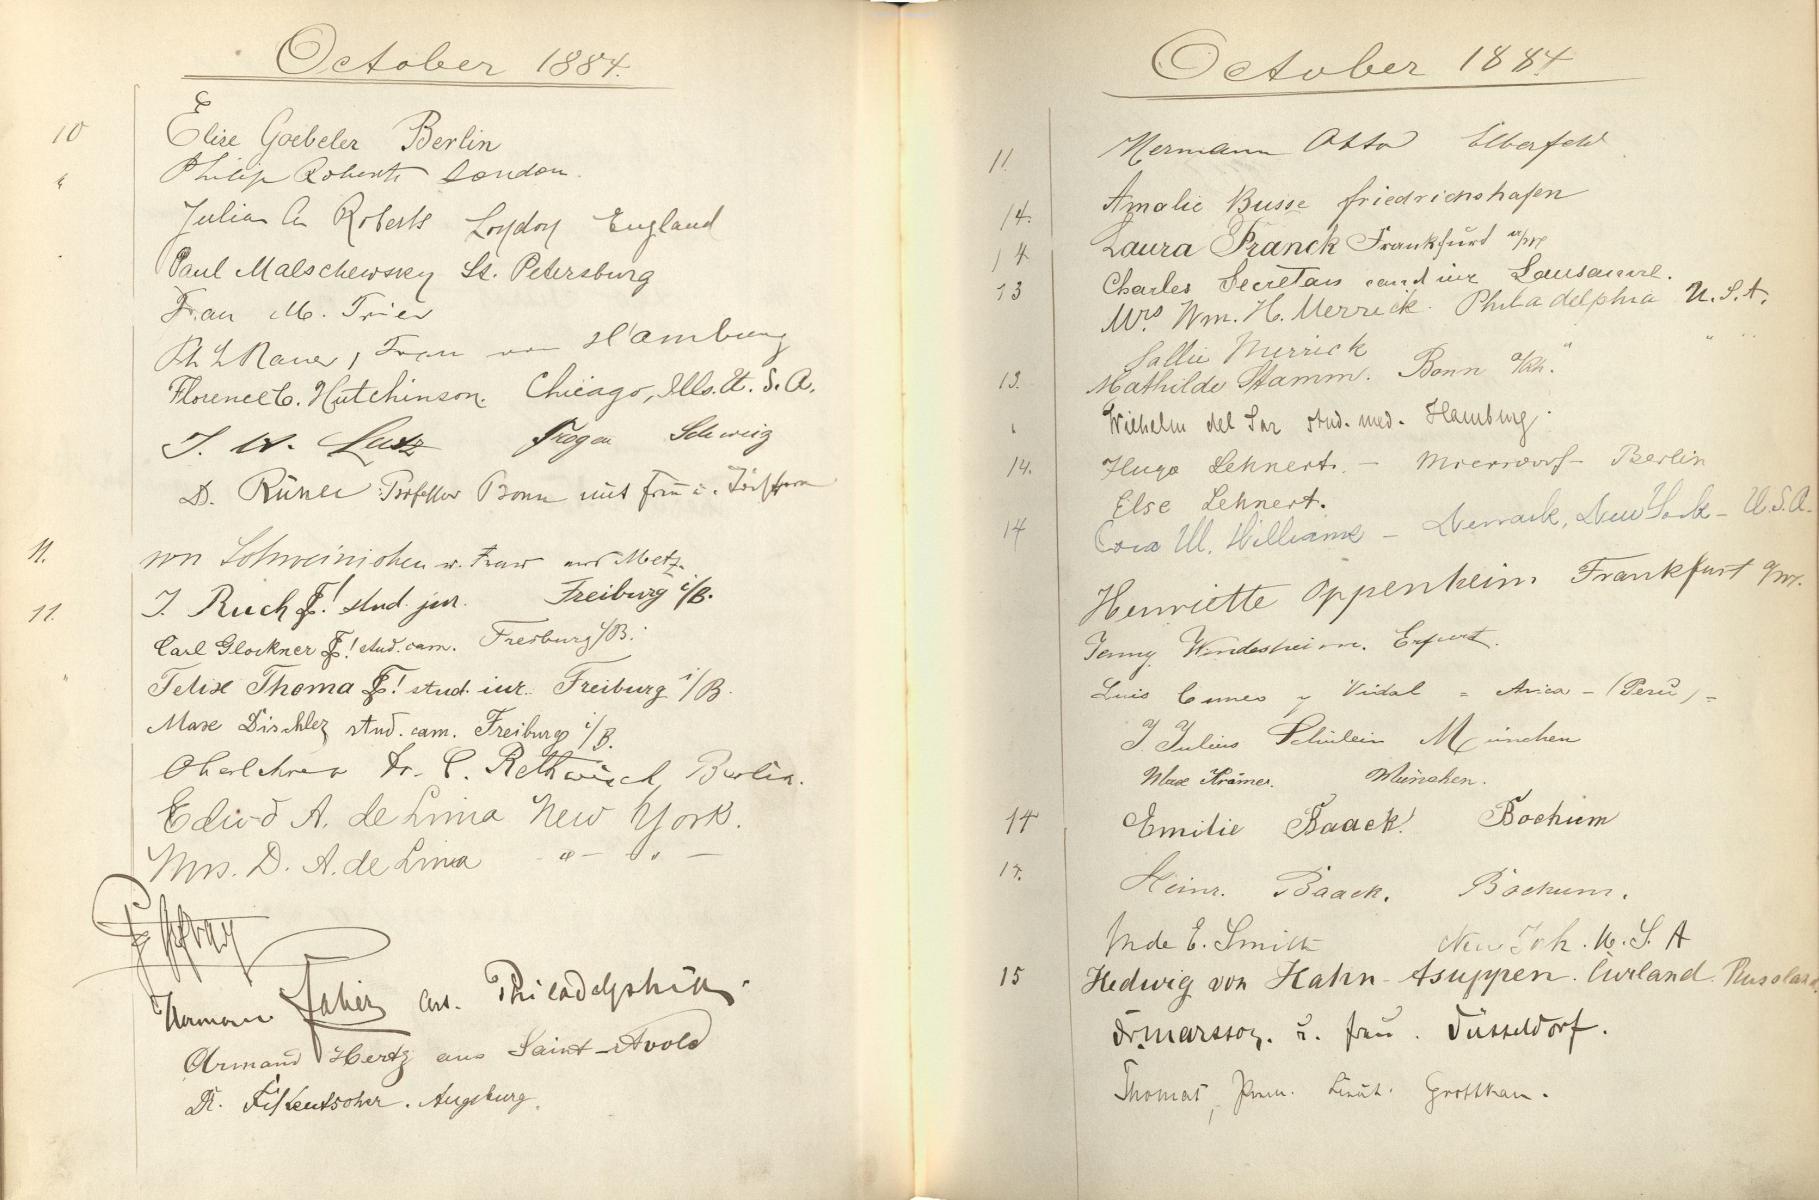 October 1884.
10 Elise Goebeler Berlin
" Philip Roberts London.
Julia A Roberts London England
Paul Malschewsky St. Petersburg
Frau M. Trier
Hamburg
Florence C. Hutchinson. Chicago, Ills. U.S.A.
J. W. Lutz Trogen Schweiz
D. Professor Bonn mit Frau u.
11. von Schweinichen u. Frau aus Metz.
11. J. Ruch ! stud. jur. Freiburg i/B.
Carl Glockner ! stud. cam. Freiburg i/B.
" Felix Thoma ! stud. iur. Freiburg i/B.
Max Dischler stud. cam. Freiburg i/B.
Oberlehrer Dr. C. Rethwisch Berlin.
Edwd A. de Lima New York.
Mrs. D. A. de Lima " - " -
Hermann Faber aus Philadelphia.
Armand Hertz aus Saint-Avold
Dr. Fikentscher. Augsburg.
October 1884
11. Hermann Otto Elberfeld
14. Amalie Busse Friedrichshafen
14 Laura Franck Frankfurt a/M
13 Charles Secretan cand iur Lausanne.
Mrs Wm. H. Merrick. Philadelphia U.S.A.
Sallie Merrick " "
13. Mathilde Stamm. Bonn a/Rh.
Wilhelm del stud. med. Hamburg.
14. Hugo Lehnert. - Berlin
Else Lehnert.
14 Cora M. Williams - Newark, New York - U.S.A.
Henriette Oppenheim Frankfurt a/M.
Jenny Windesheim. Erfurt.
Luis Cuneo y Vidal = Arica - (Perú) =
J Julius Schülein München
Max Krämer. München.
14 Emilie Baack. Bochum
Heinr. Baack. Bochum.
E. Smith New York. U.S.A
15 Hedwig von Hahn - Asuppen. Curland Russland.
Dr. Marsson. u. Frau. Düsseldorf.
Thomas, Prem. Lieut. Grottkau.